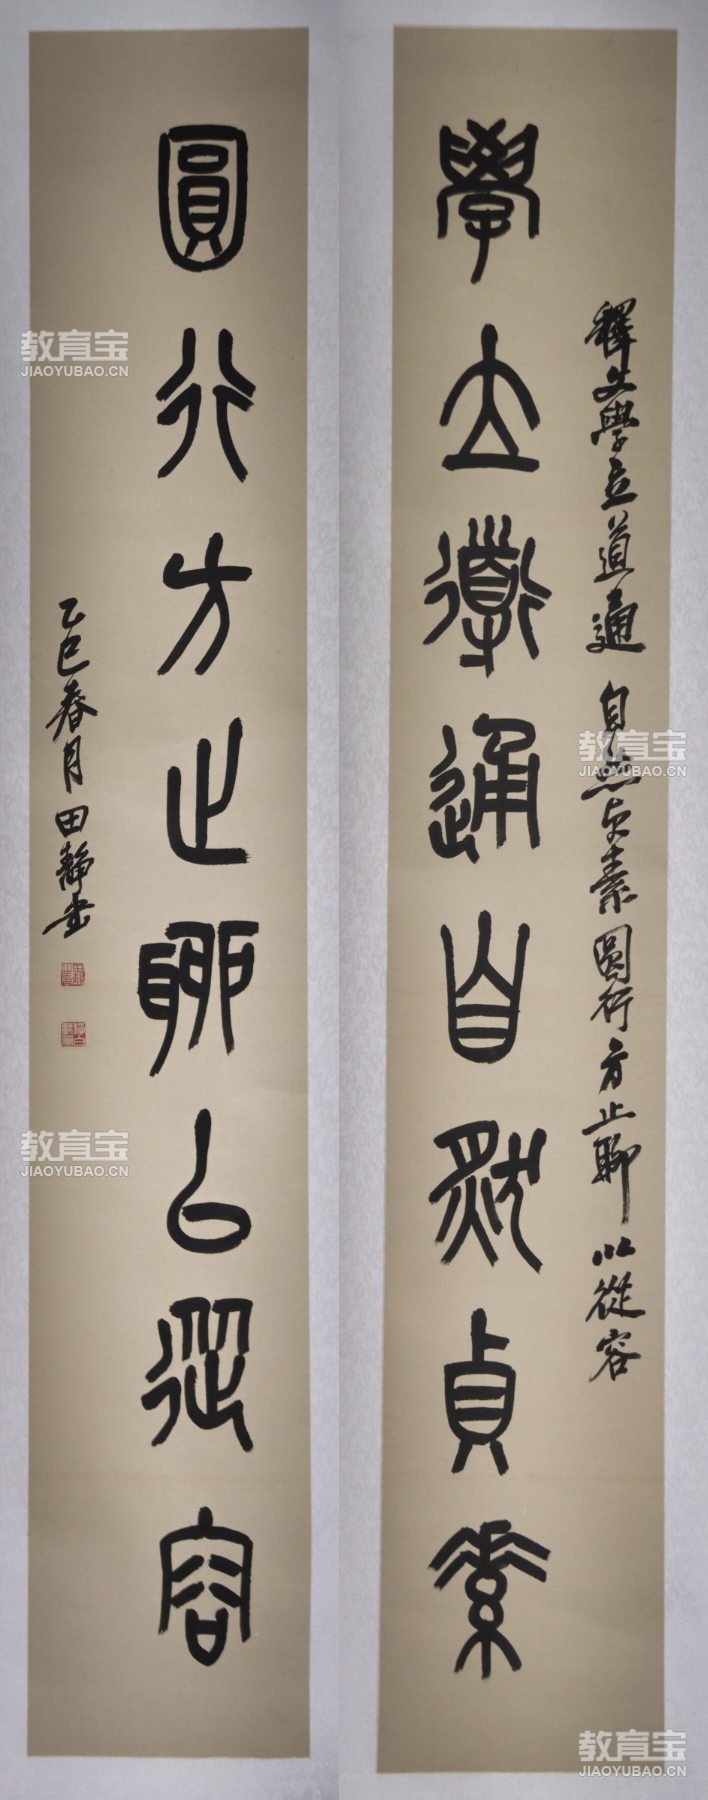 釋文學立道通 自然貞素圓行方止聊以從容
學立導通自然貞素
圓行方止聊以從容
乙巳春月田靜書
教育宝
JIAOYUBAO.CN
教育宝
JIAOYUBAO.CN
教育宝
JIAOYUBAO.CN
教育宝
JIAOYUBAO.CN